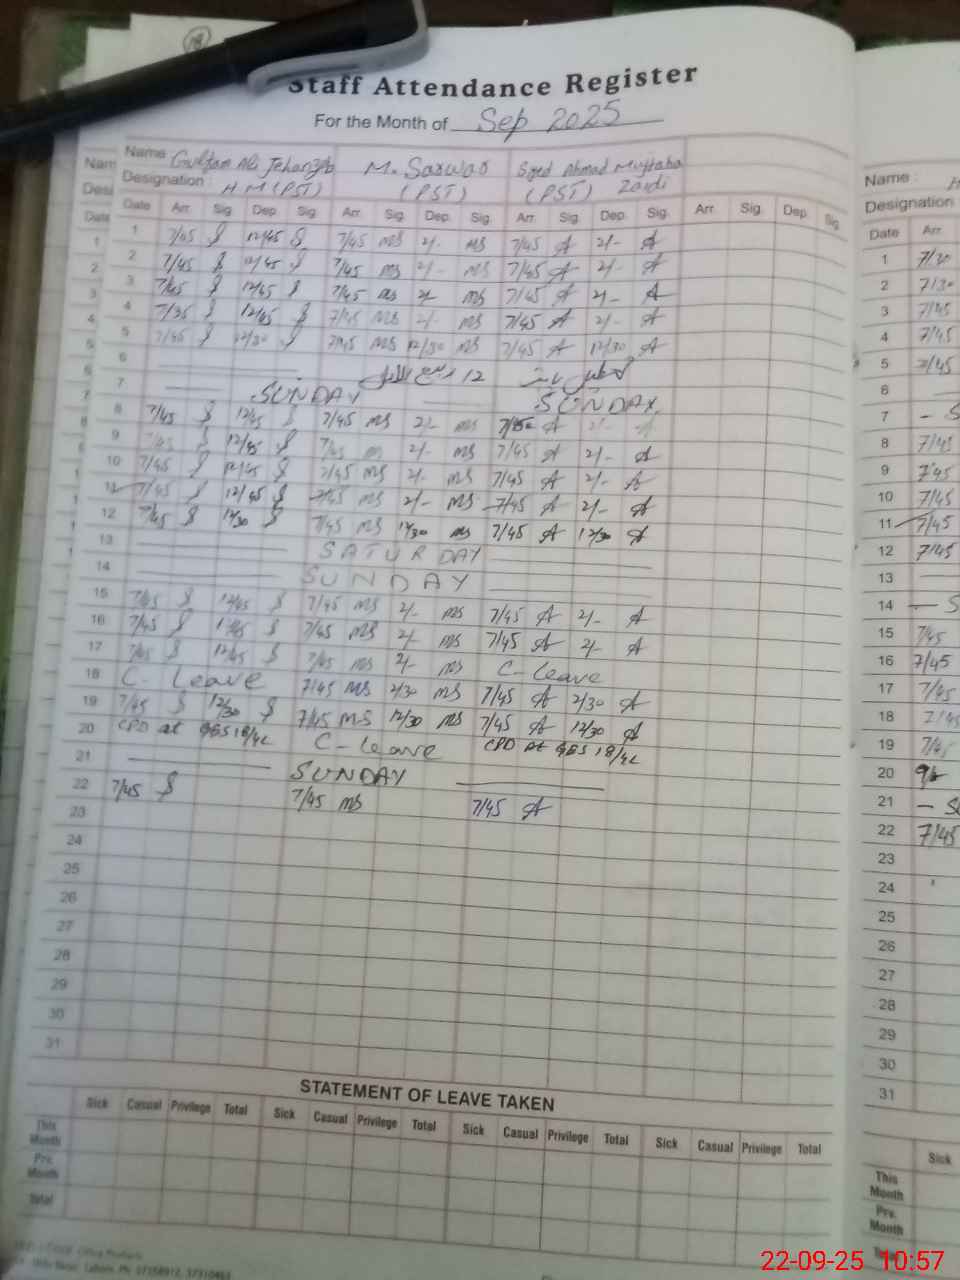 Staff Attendance Register
For the Month of Sep 2025
Name Gulfam Ali Jehanzeb M. Sarwar Syed Ahmad Mujtaba
Designation : H M (PST) (PST) (PST) Zaidi
Date Arr. Sig. Dep. Sig. Arr. Sig. Dep. Sig. Arr. Sig. Dep. Sig. Arr. Sig. Dep. Sig.
1 7/45 12/45 7/45 MS 2/- MS 7/45 A 2/- A
2 7/45 12/45 7/45 MS 2/- MS 7/45 A 2/- A
3 7/45 12/45 7/45 MS 2/- MS 7/45 A 2/- A
4 7/35 12/45 7/45 MS 2/- MS 7/45 A 2/- A
5 7/45 12/30 7/45 MS 12/30 MS 7/45 A 12/30 A
6 12 ربیع الاول
7 SUNDAY SUNDAY
8 7/45 12/45 7/45 MS 2/- MS A 2/- A
9 7/45 12/45 7/45 m 2/- MS 7/45 A 2/- A
10 7/45 12/45 7/45 MS 2/- MS 7/45 A 2/- A
11 7/45 12/45 7/45 MS 2/- MS 7/45 A 2/- A
12 7/45 12/30 7/45 MS 12/30 MS 7/45 A 12/30 A
13 SATURDAY
14 SUNDAY
15 7/45 12/45 7/45 MS 2/- MS 7/45 A 2/- A
16 7/45 12/45 7/45 MS 2/- MS 7/45 A 2/- A
17 7/45 12/45 7/45 MS 2/- MS C-Leave
18 C-Leave 7/45 MS 2/30 MS 7/45 A 2/30 A
19 7/45 12/30 7/45 MS 12/30 MS 7/45 A 12/30 A
20 CPD at GES 18/4L C-leave CPD At GES 18/4L
21 SUNDAY
22 7/45 7/45 MS 7/45 A
23
24
25
26
27
28
29
30
31
STATEMENT OF LEAVE TAKEN
Sick Casual Privilege Total Sick Casual Privilege Total Sick Casual Privilege Total Sick Casual Privilege Total
This Month
Prv. Month
Total
Name :
Designation
Date Arr.
1 7/30
2 7/30
3 7/45
4 7/45
5 7/45
6
7 - S
8 7/45
9 7/45
10 7/45
11 7/45
12 7/45
13
14 - S
15 7/45
16 7/45
17 7/45
18 7/45
19 7/45
20
21 - SU
22 7/45
23
24
25
26
27
28
29
30
31
Sick
This Month
Prv. Month
Total
22-09-25 10:57